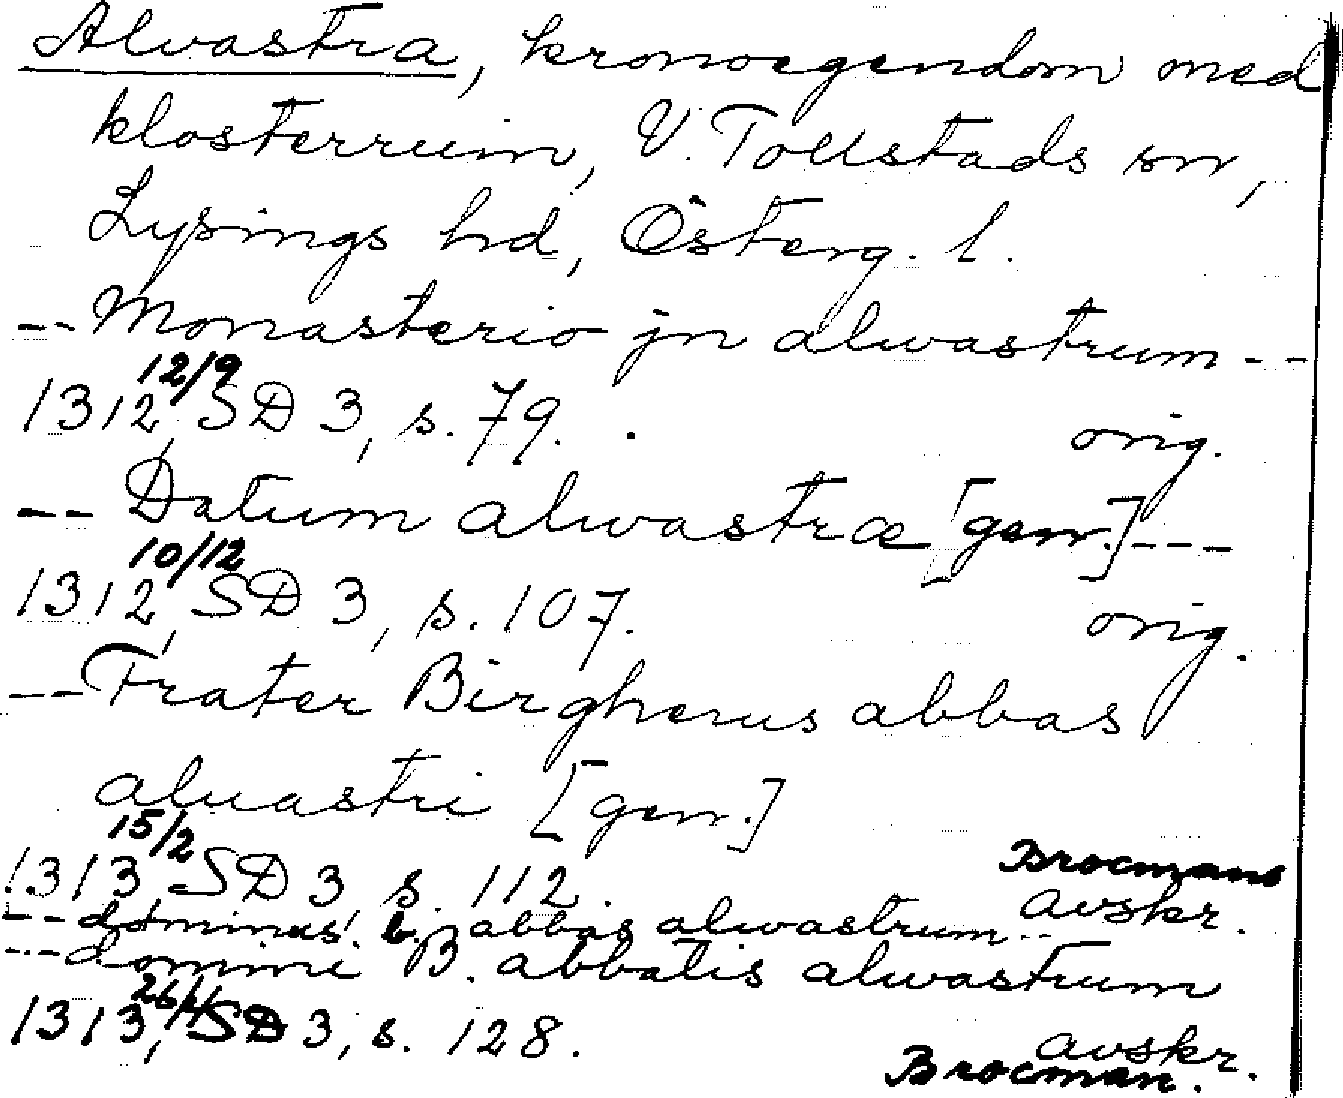 Alvastra, kronoegendom med
klosterruin, V. Tollstads sn,
Lysings hd, Österg. l.
-- Monasterio jn alwastrum --
1312 12/9, SD 3, s. 79. orig.
-- Datum alwastræ [gen.] ---
1312 10/12, SD 3, s. 107. orig.
-- Frater Birgherus abbas
aluastri [gen.]
1313 15/2 SD 3, s. 112. Brocmans avskr.
--- dominus. b. abbas alwastrum --
--- domini B. abbatis alwastrum
1313, SD 3, s. 128. avskr.
Brocman.